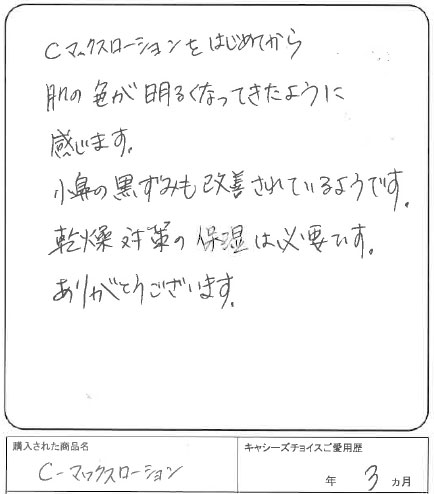 Cマックスローションをはじめてから
肌の色が明るくなってきたように
感じます。
小鼻の黒ずみも改善されているようです。
乾燥対策の保湿は必要です。
ありがとうございます。
購入された商品名
キャシーズチョイスご愛用歴
C-マックスローション
年 3 ヵ月